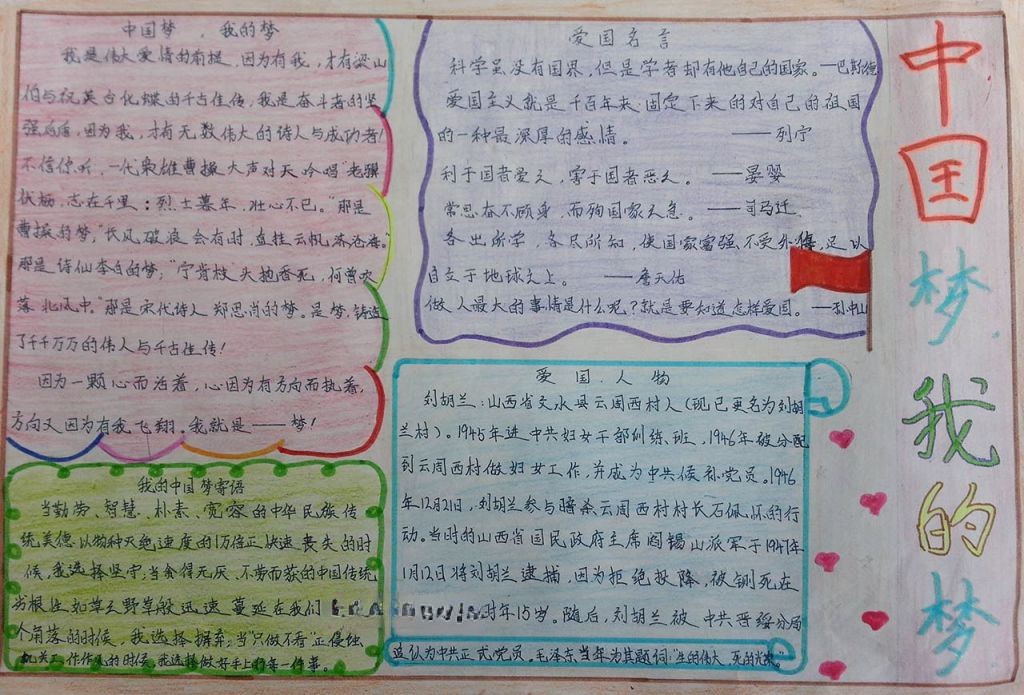 中国梦，我的梦
我是伟大爱情的前提，因为有我，才有梁山
伯与祝英台化蝶的千古佳传，我是奋斗者的坚
强后盾，因为我，才有无数伟大的诗人与成功者！
不信你听，一代枭雄曹操大声对天吟唱"老骥
伏枥，志在千里：烈士暮年，壮心不已。"那是
曹操的梦；"长风破浪会有时，直挂云帆济沧海。"
那是诗仙李白的梦；"宁肯枝头抱香死，何曾吹
落北风中。"那是宋代诗人郑思尚的梦。是梦，铸造
了千千万万的伟人与千古佳传！
因为一颗心而活着，心因为有方向而执着，
方向又因为有我飞翔。我就是——梦！
我的中国梦寄语
当勤劳、智慧、朴素、宽容的中华民族传
统美德以物种灭绝速度的1万倍正快速丧失的时
候，我选择坚守；当贪得无厌、不劳而获的中国传统
劣根性如草之野草般迅速蔓延在我们
个角落的时候，我选择摒弃；当"只做不看"正侵蚀
机关工作作风的时候，我选择做好手上的每一件事。
爱国名言
科学虽没有国界，但是学者却有他自己的国家。—巴斯德
爱国主义就是千百年来固定下来的对自己的祖国
的一种最深厚的感情。——列宁
利于国者爱之，害于国者恶之。——晏婴
常思奋不顾身，而殉国家之急。——司马迁
各出所学，各尽所知，使国家富强不受外侮，足以
自立于地球之上。——詹天佑
做人最大的事情是什么呢？就是要知道怎样爱国。—孙中山
爱国人物
刘胡兰：山西省文水县云周西村人（现已更名为刘胡
兰村）。1945年进中共妇女干部训练班，1946年被分配
到云周西村做妇女工作，并成为中共候补党员。1946
年12月21日，刘胡兰参与暗杀云周西村村长石佩怀的行
动。当时的山西省国民政府主席阎锡山派军于1947年
1月12日将刘胡兰逮捕，因为拒绝投降，被铡死在
时年15岁。随后，刘胡兰被中共晋绥分局
追认为中共正式党员。毛泽东当年为其题词："生的伟大，死的光荣。"
中国梦我的梦